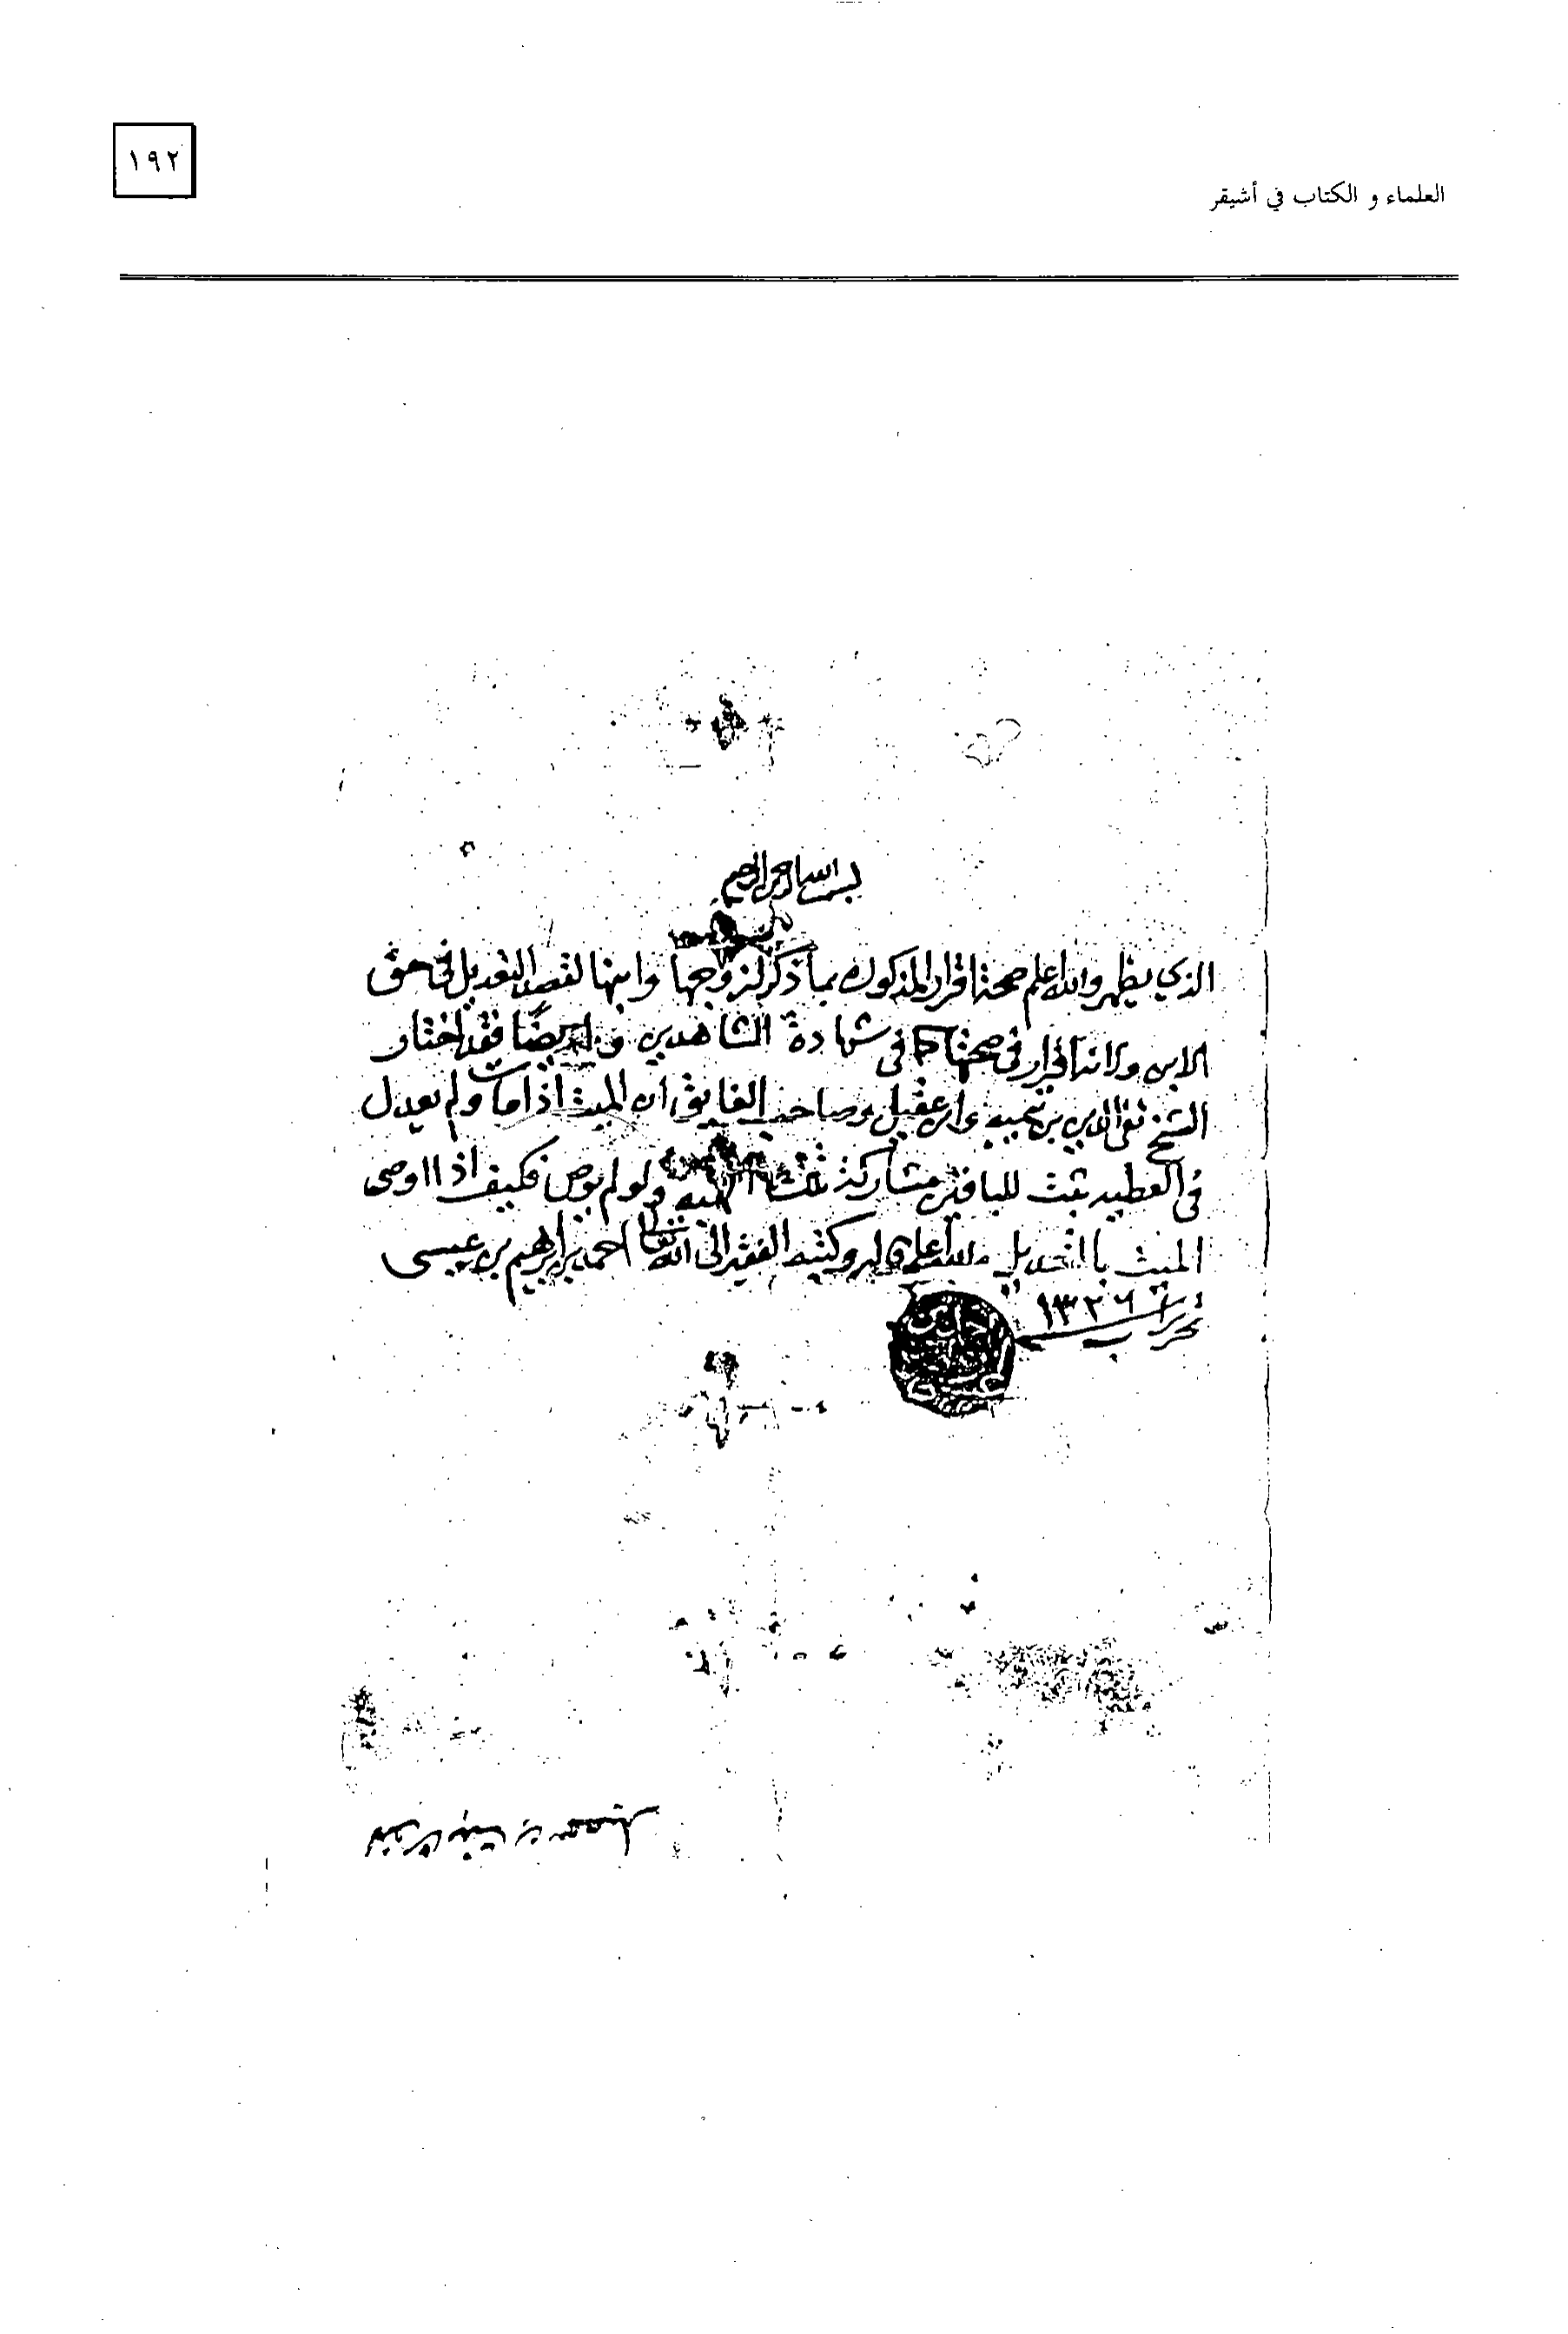 ١٩٢
العلماء و الكتاب في أشيقر
بسم الله الرحمن الرحيم
الذي يظهر والله اعلم صحة اقرار المذكوره بما ذكر لزوجها وابنها لقصد التعديل في حق
الابن ولانه اقرار في صحتها كما في شهادة الشاهدين وايضًا فقد اختار
الشيخ تقي الدين بن تيميه وابن عقيل وصاحب الفايق ان الميت اذا مات ولم يعدل
في العطيه ثبت للباقين مشاركة ولو لم يوص فكيف اذا اوصى
الميت بالتعديل والله اعلم وكتبه الفقير الى الله تعالى احمد بن ابراهيم بن عيسى
تحرير ١٣٢٦